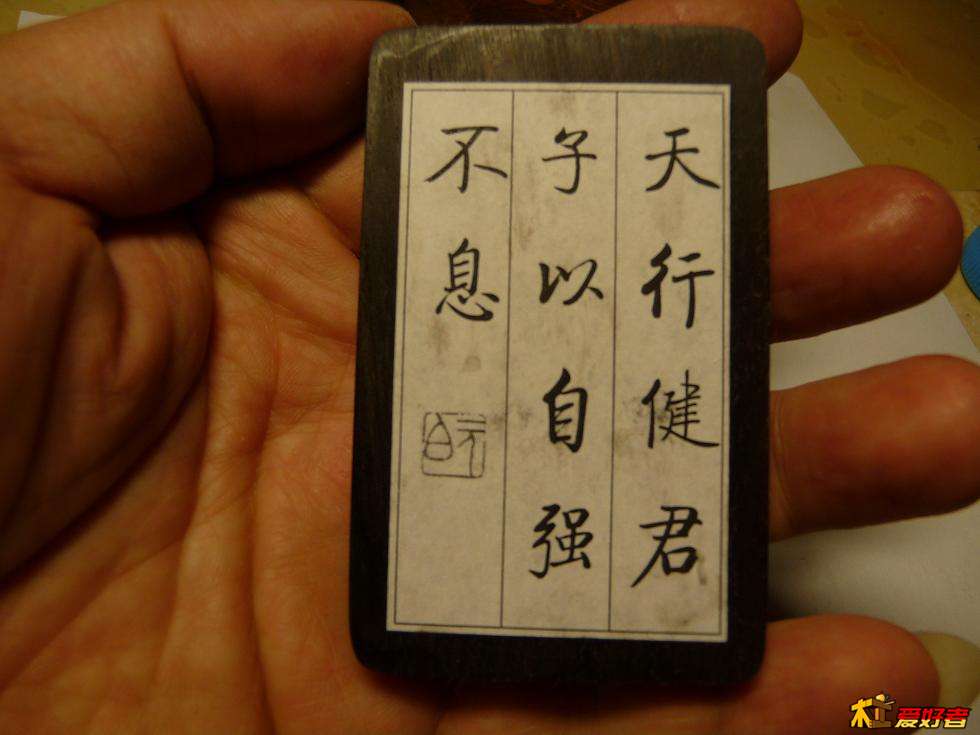 天行健君
子以自强
不息
木工爱好者